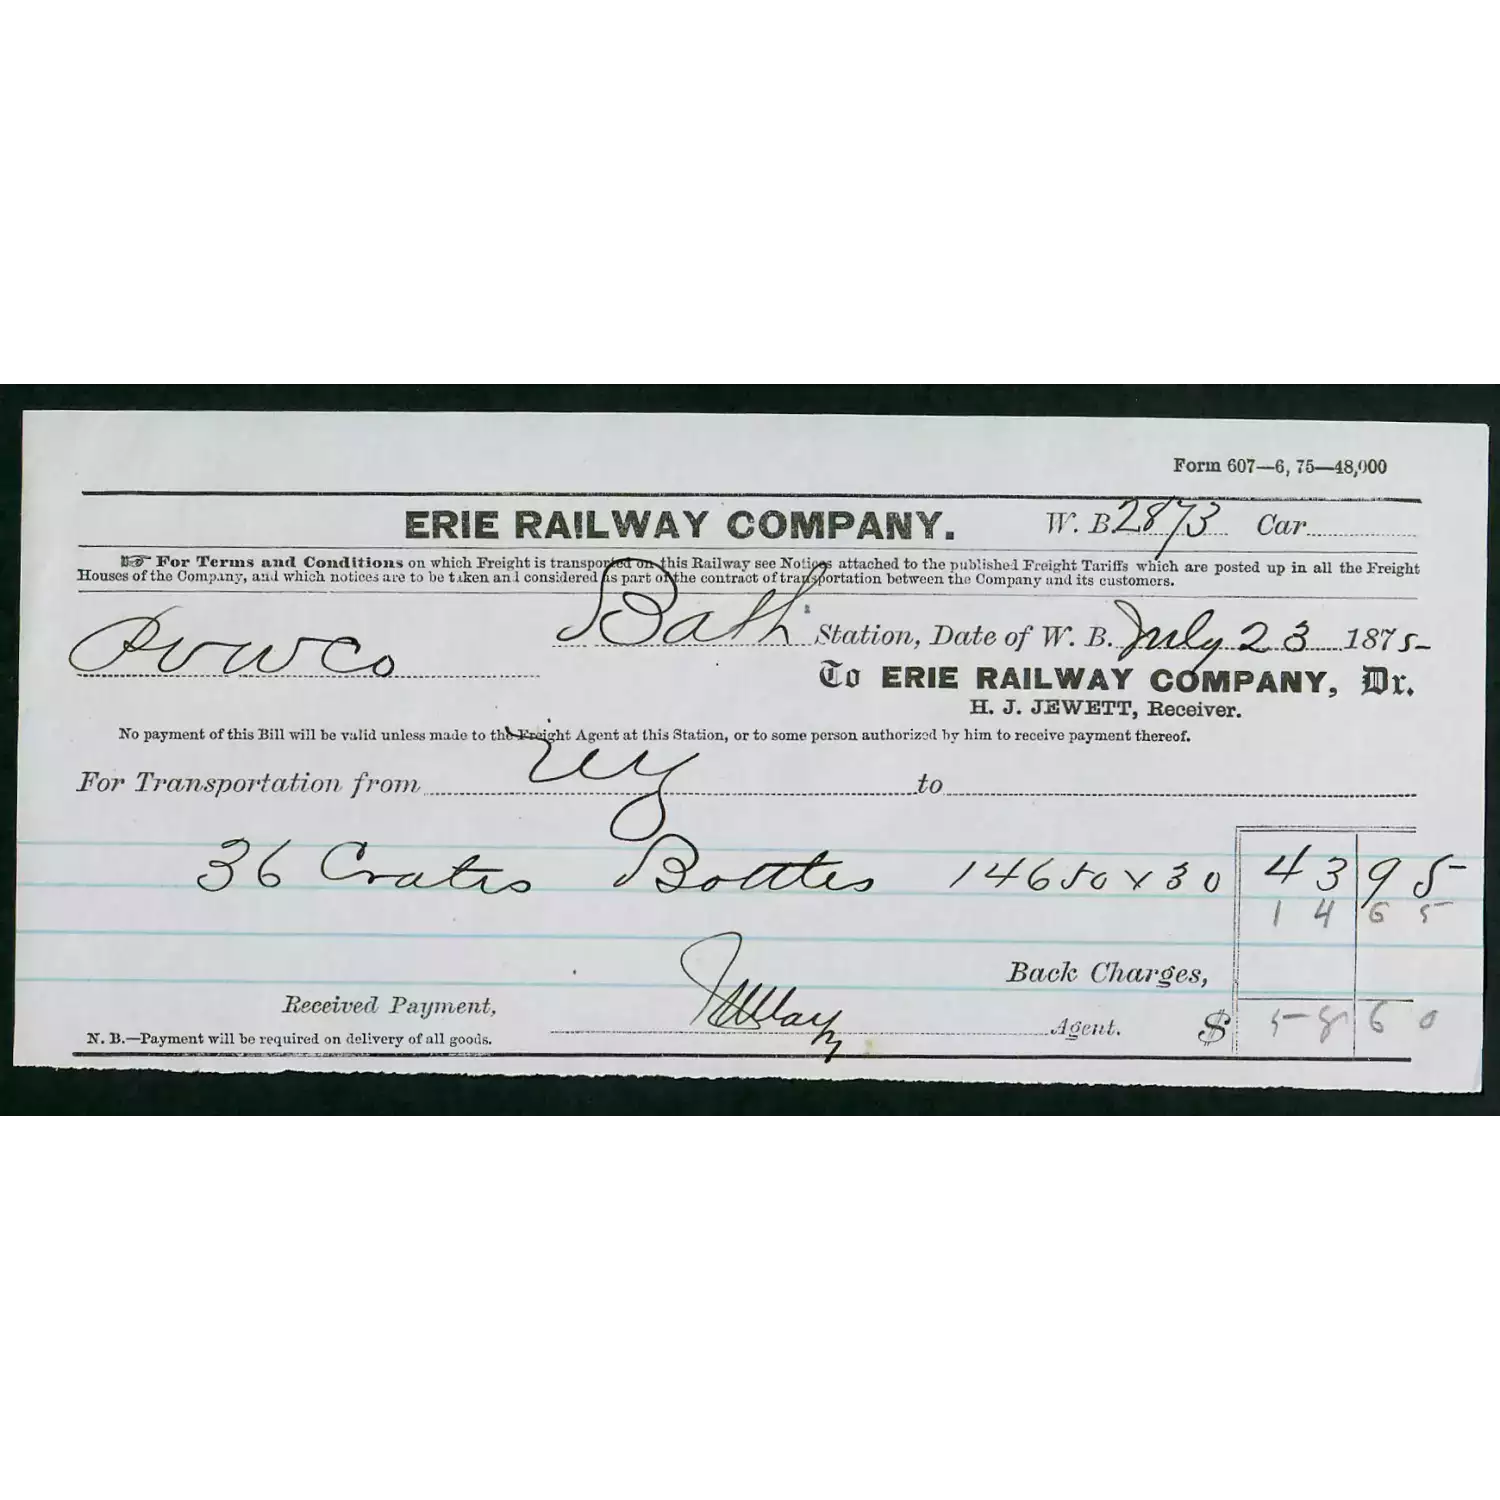 Form 607—6, 75—48,000
ERIE RAILWAY COMPANY. W. B. 2873 Car
☞ For Terms and Conditions on which Freight is transported on this Railway see Notices attached to the published Freight Tariffs which are posted up in all the Freight
Houses of the Company, and which notices are to be taken and considered as part of the contract of transportation between the Company and its customers.
Bath Station, Date of W. B. July 23 1875
To ERIE RAILWAY COMPANY, Dr.
H. J. JEWETT, Receiver.
No payment of this Bill will be valid unless made to the Freight Agent at this Station, or to some person authorized by him to receive payment thereof.
For Transportation from NY to
36 Crates Bottles 14650 x 30 43 95
14 65
Back Charges,
Received Payment, Agent. $ 58 60
N. B.—Payment will be required on delivery of all goods.